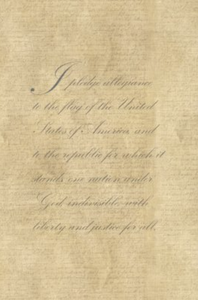 I pledge allegiance
to the flag of the United
States of America and
to the republic for which it
stands one nation under
God indivisible with
liberty and justice for all.